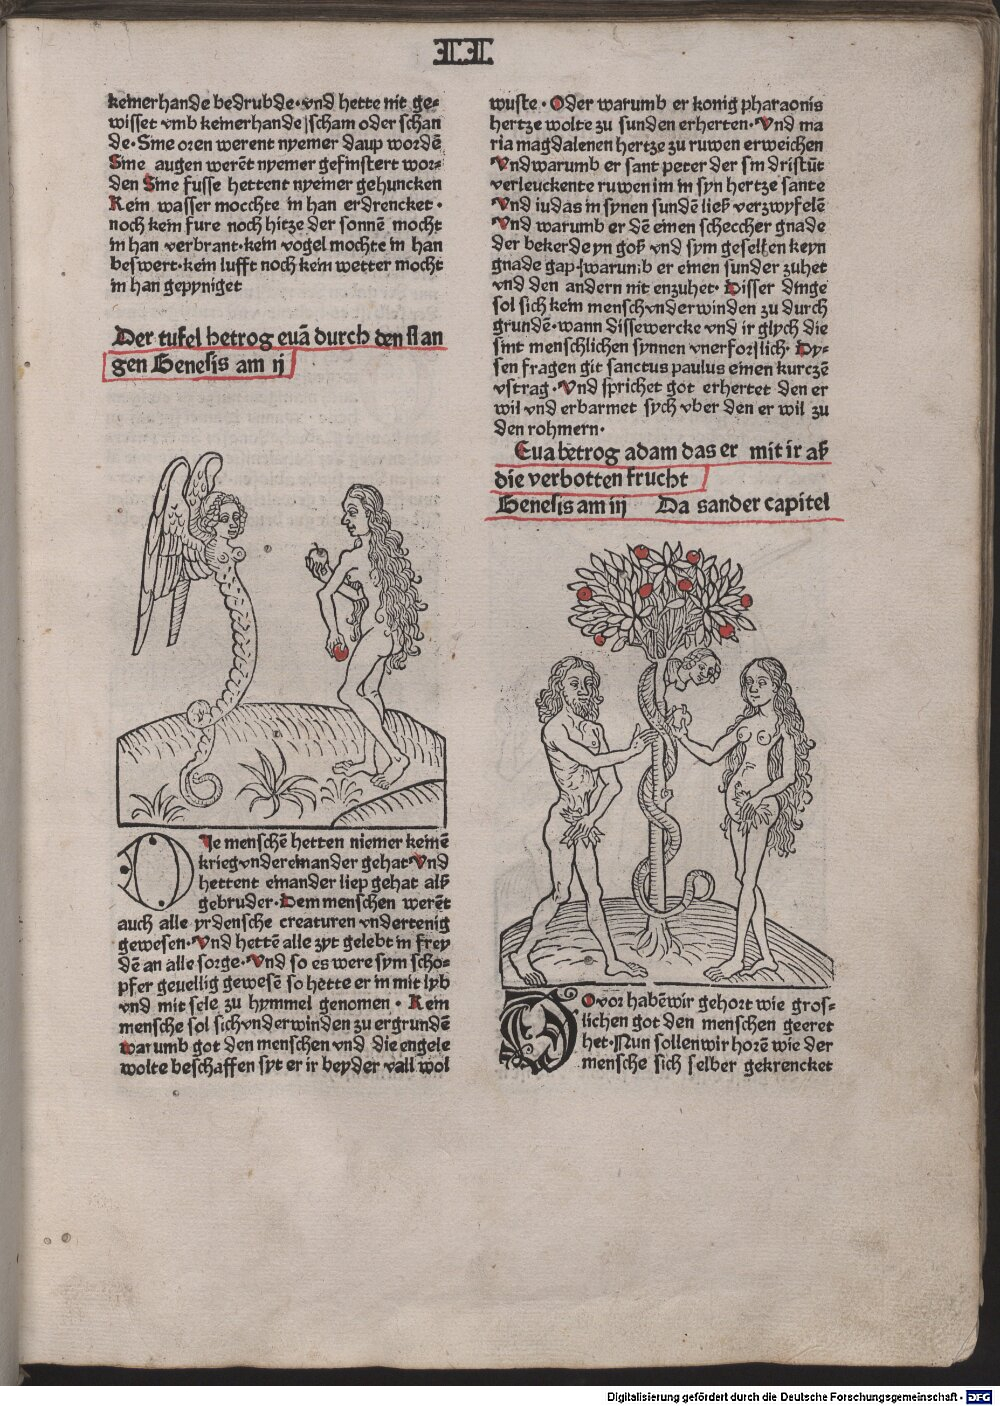 III
keinerhande bedrubde·vnd hette nit ge⸗
wisset vmb keinerhande scham oder schan
de·Sine oren werent nyemer daup wordē
Sine augen werēt nyemer gefinstert wor⸗
den Sine fusse hettent nyemer gehuncken
Kein wasser mocchte in han erdrencket·
noch kein fure noch hitze der sonnē mocht
in han verbrant·kein vogel mochte in han
beswert·kein lufft noch kein wetter mocht
in han gepyniget
Der tufel betrog euā durch den slan
gen Genesis am ij
DIe menschē hetten niemer keinē
krieg vnder einander gehat Vnd
hettent einander liep gehat alß
gebruder·Dem menschen werēt
auch alle yrdensche creaturen vndertenig
gewesen·Vnd hettē alle zyt gelebt in frey
dē an alle sorge·Vnd so es were sym scho⸗
pfer geuellig gewesē so hette er in mit lyb
vnd mit sele zu hymmel genomen·Kein
mensche sol sich vnderwinden zu ergrundē
warumb got den menschen vnd die engele
wolte beschaffen syt er ir beyder vall wol
wuste·Oder warumb er konig pharaonis
hertze wolte zu sunden erherten·Vnd ma
ria magdalenen hertze zu ruwen erweichen
Vnd warumb er sant peter der sin dristūt
verleuckente ruwen im in syn hertze sante
Vnd iudas in synen sundē ließ verzwyfelē
Vnd warumb er dē einen scheccher gnade
der bekerde yn goß vnd sym gesellen keyn
gnade gap·warumb er einen sunder zuhet
vnd den andern nit enzuhet·Disser dinge
sol sich kein mensch vnderwinden zu durch
grundē·wann disse wercke vnd ir glych die
sint menschlichen synnen vnerforslich·Dy⸗
sen fragen git sanctus paulus einen kurczē
vstrag·Vnd sprichet got erhertet den er
wil vnd erbarmet sych vber den er wil zu
den rohmern·
Eua betrog adam das er mit ir aß
die verbotten frucht
Genesis am iij Da sander capitel
DOvor habē wir gehort wie gros⸗
lichen got den menschen geeret
het·Nun sollen wir horē wie der
mensche sich selber gekrencket
Digitalisierung gefördert durch die Deutsche Forschungsgemeinschaft - DFG